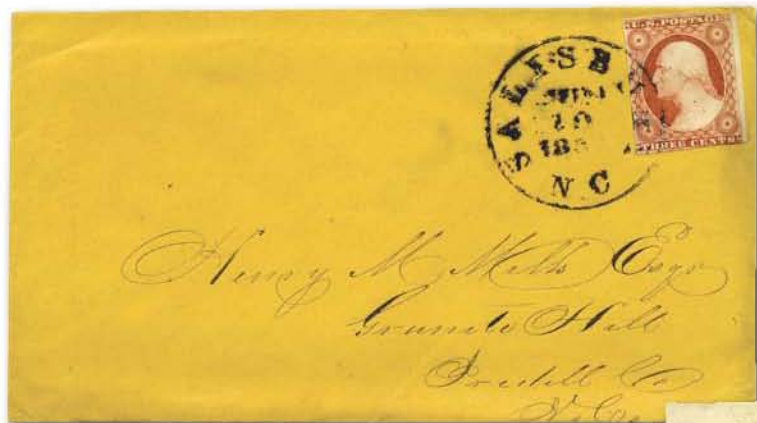 U.S. POSTAGE
THREE CENTS
SALISB
10
185
N C
Henry M Mills Esqr
Granite Hill
Iredell Co
N. Ca